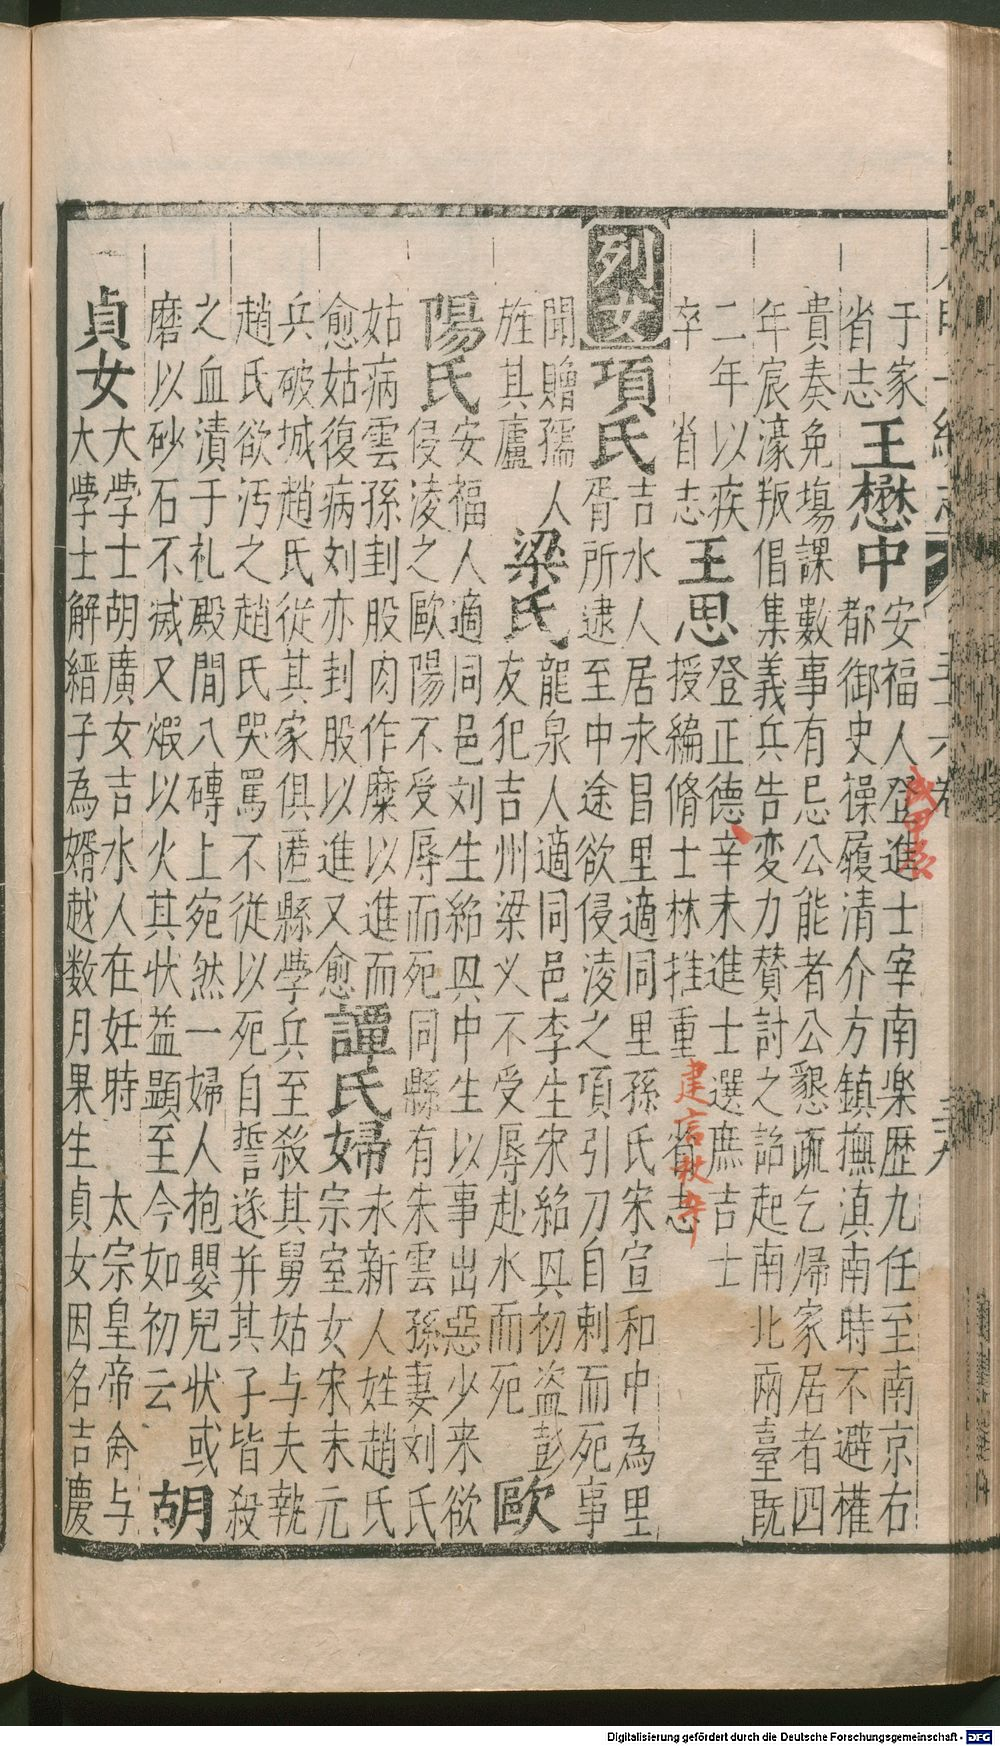 于家
省志
王懋中
安福人登進士宰南楽歴九任至南京右
都御史操履清介方鎮撫滇南時不避權
貴奏免塲課數事有忌公能者公懇疏乞歸家居者四
年宸濠叛倡集義兵告変力贊討之詔起南北兩臺既
二年以疾
卒 省志
王思
登正德辛未進士選庶吉士
授編脩士林推重 省志
建言杖卒
列女
項氏
吉水人居永昌里適同里孫氏宋宣和中為里
胥所逮至中途欲侵淩之項引刀自刺而死事
聞贈孺人
旌其廬
梁氏
龍泉人適同邑李生宋紹興初盜彭
友犯吉州梁义不受辱赴水而死
歐
陽氏
安福人適同邑刘生紹興中生以事出惡少来欲
侵淩之歐陽不受辱而死同縣有朱雲孫妻刘氏
姑病雲孫刲股肉作糜以進而
愈姑復病刘亦刲股以進又愈
譚氏婦
永新人姓趙氏
宗室女宋末元
兵破城趙氏従其家俱匿縣學兵至殺其舅姑与夫執
趙氏欲汚之趙氏哭罵不従以死自誓遂并其子皆殺
之血漬于礼殿間八磚上宛然一婦人抱嬰兒状或
磨以砂石不滅又煅以火其状益顕至今如初云
胡
貞女
大學士胡廣女吉水人在妊時 太宗皇帝命与
大學士解縉子為婿越数月果生貞女因名吉慶
Digitalisierung gefördert durch die Deutsche Forschungsgemeinschaft - DFG